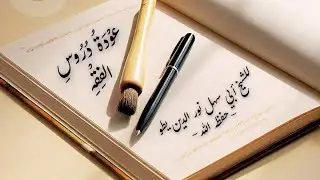 عَوْدَةُ دُرُوسِ
الفِقْهِ
للشيخ أبي سهل نور الدين يطو
- حفظه الله -